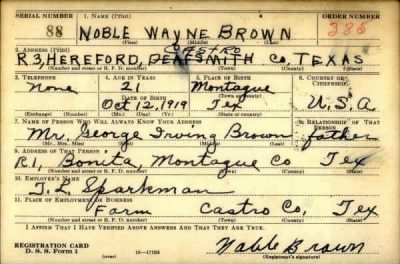 SERIAL NUMBER 1. NAME (Print) ORDER NUMBER
88 NOBLE WAYNE BROWN 385
(First) (Middle) (Last)
2. ADDRESS (Print) CASTRO
R3, HEREFORD, DEAFSMITH Co, TEXAS
(Number and street or R. F. D. number) (Town) (County) (State)
3. TELEPHONE 4. AGE IN YEARS 5. PLACE OF BIRTH 6. COUNTRY OF CITIZENSHIP
None 21 Montague
DATE OF BIRTH (Town or county)
Oct 12, 1919 Tex U.S.A.
(Exchange) (Number) (Mo.) (Day) (Yr.) (State or country)
7. NAME OF PERSON WHO WILL ALWAYS KNOW YOUR ADDRESS 8. RELATIONSHIP OF THAT PERSON
Mr. George Irving Brown father
(Mr., Mrs., Miss) (First) (Middle) (Last)
9. ADDRESS OF THAT PERSON
R1, Bonita, Montague Co Tex
(Number and street or R. F. D. number) (Town) (County) (State)
10. EMPLOYER'S NAME
T. L. Sparkman
11. PLACE OF EMPLOYMENT OR BUSINESS
Farm Castro Co, Tex
(Number and street or R. F. D. number) (Town) (County) (State)
I AFFIRM THAT I HAVE VERIFIED ABOVE ANSWERS AND THAT THEY ARE TRUE.
REGISTRATION CARD
D. S. S. Form 1 16—17105 Noble Brown
(Registrant's signature)